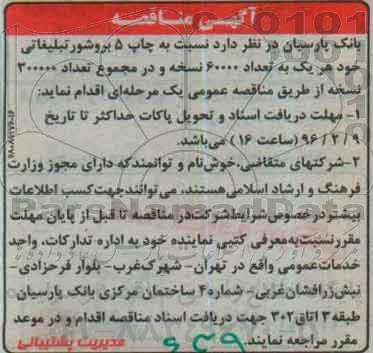 آگهی مناقصه
بانک پارسیان در نظر دارد نسبت به چاپ ۵ بروشور تبلیغاتی
خود هر یک به تعداد ۶۰۰۰۰ نسخه و در مجموع تعداد ۳۰۰۰۰۰
نسخه از طریق مناقصه عمومی یک مرحله‌ای اقدام نماید:
۱- مهلت دریافت اسناد و تحویل پاکات حداکثر تا تاریخ
۹۶/۲/۹ (ساعت ۱۶) می‌باشد.
۲- شرکتهای متقاضی، خوش‌نام و توانمند که دارای مجوز وزارت
فرهنگ و ارشاد اسلامی هستند، می‌توانند جهت کسب اطلاعات
بیشتر در خصوص شرایط شرکت در مناقصه تا قبل از پایان مهلت
مقرر نسبت به معرفی کتبی نماینده خود به اداره تدارکات، واحد
خدمات عمومی واقع در تهران- شهرک غرب- بلوار فرحزادی-
نبش زرافشان غربی- شماره ۴ ساختمان مرکزی بانک پارسیان
طبقه ۳ اتاق ۳۰۲ جهت دریافت اسناد مناقصه اقدام و در موعد
مقرر مراجعه نمایند.
مدیریت پشتیبانی